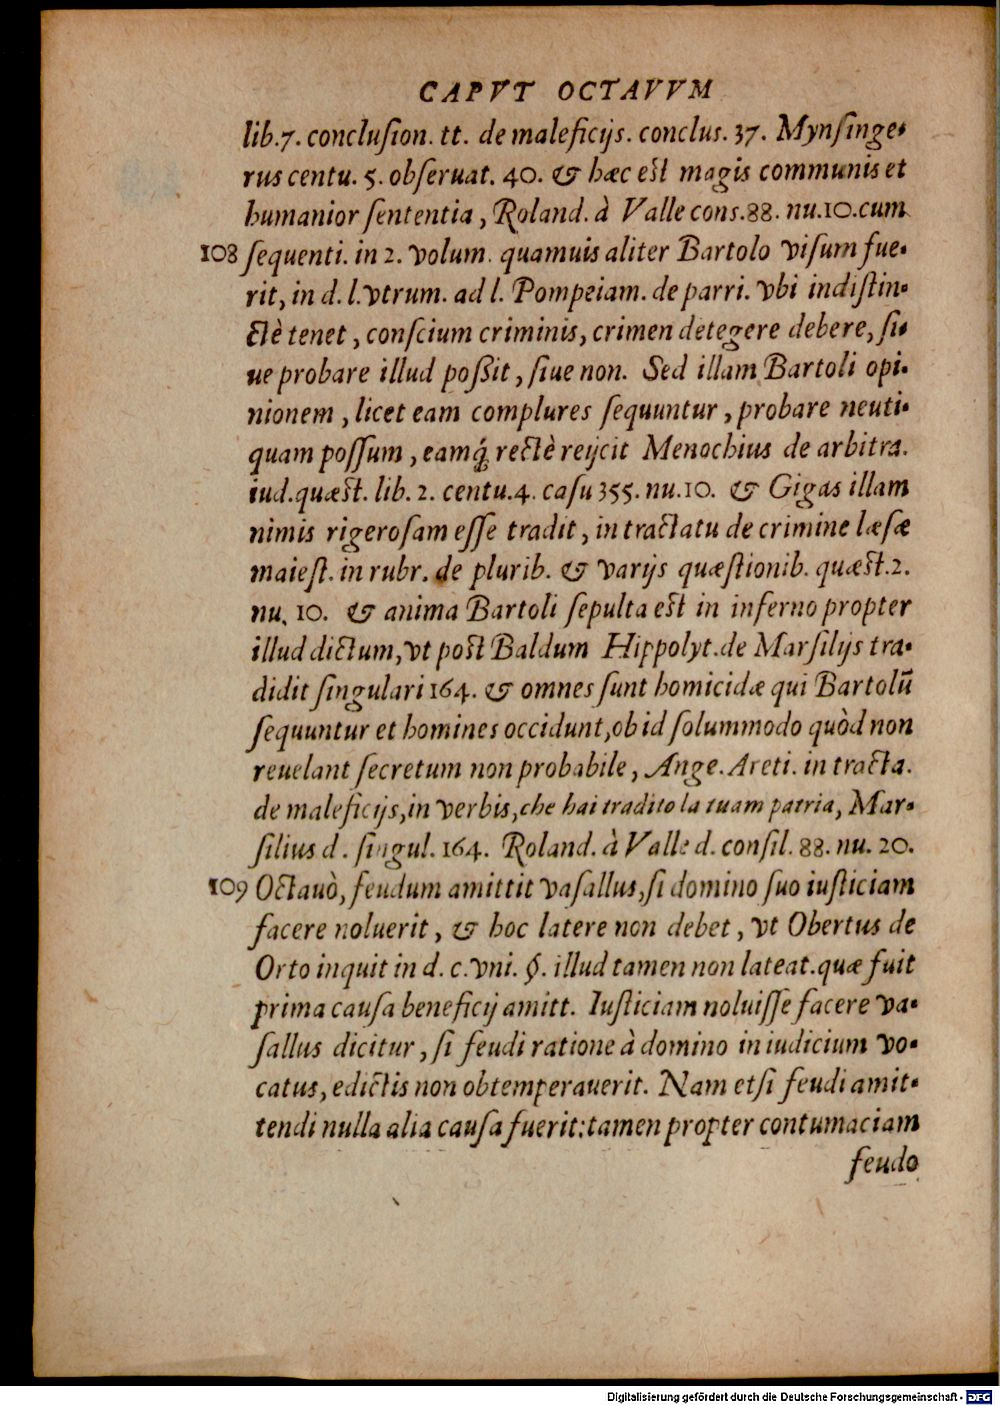 CAPVT OCTAVVM
lib.7. conclusion. tt. de maleficijs. conclus. 37. Mynsinge-
rus centu. 5. obseruat. 40. & hæc est magis communis et
humanior sententia, Roland. à Valle cons.88. nu.10.cum
108 sequenti. in 2. volum. quamuis aliter Bartolo visum fue-
rit, in d. l.vtrum. ad l. Pompeiam. de parri. vbi indistin-
ctè tenet, conscium criminis, crimen detegere debere, si-
ue probare illud possit, siue non. Sed illam Bartoli opi-
nionem, licet eam complures sequuntur, probare neuti-
quam possum, eamq́; rectè reijcit Menochius de arbitra.
iud.quæst. lib. 2. centu.4. casu 355. nu.10. & Gigas illam
nimis rigerosam esse tradit, in tractatu de crimine læsæ
maiest. in rubr. de plurib. & varijs quæstionib. quæst.2.
nu. 10. & anima Bartoli sepulta est in inferno propter
illud dictum, vt post Baldum Hippolyt.de Marsilijs tra-
didit singulari 164. & omnes sunt homicidæ qui Bartolū
sequuntur et homines occidunt,ob id solummodo quòd non
reuelant secretum non probabile, Ange. Areti. in tracta.
de maleficijs,in verbis,che hai tradito la tuam patria, Mar-
silius d. singul. 164. Roland. à Valle d. consil. 88. nu. 20.
109 Octauò, feudum amittit vasallus, si domino suo iusticiam
facere noluerit, & hoc latere non debet, vt Obertus de
Orto inquit in d. c.vni. §. illud tamen non lateat.quæ fuit
prima causa beneficij amitt. Iusticiam noluisse facere va-
sallus dicitur, si feudi ratione à domino in iudicium vo-
catus, edictis non obtemperauerit. Nam etsi feudi amit-
tendi nulla alia causa fuerit:tamen propter contumaciam
feudo
Digitalisierung gefördert durch die Deutsche Forschungsgemeinschaft - DFG